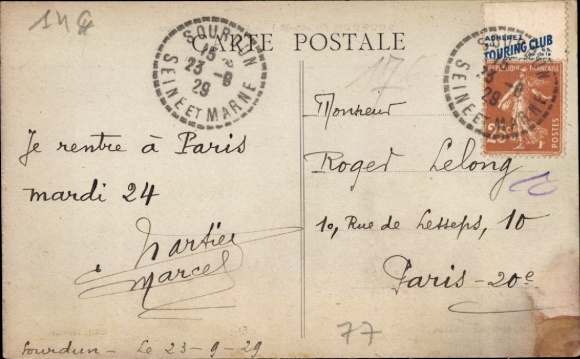 14 G
CARTE POSTALE
SOURDUN
15 *
23 - 8
29
SEINE ET MARNE
ADHÉREZ
TOURING CLUB
RÉPUBLIQUE FRANÇAISE
25c
POSTES
SOURDUN
23 - 8
29
SEINE ET MARNE
17
Je rentre à Paris
mardi 24
Marcel
Monsieur
Roger Lelong
10, Rue de Lesseps, 10
Paris - 20e
77
Sourdun - Le 23 - 9 - 29